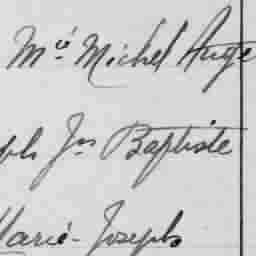 Mié Michel Ange
ph Jos Baptiste
Marie-Joseph